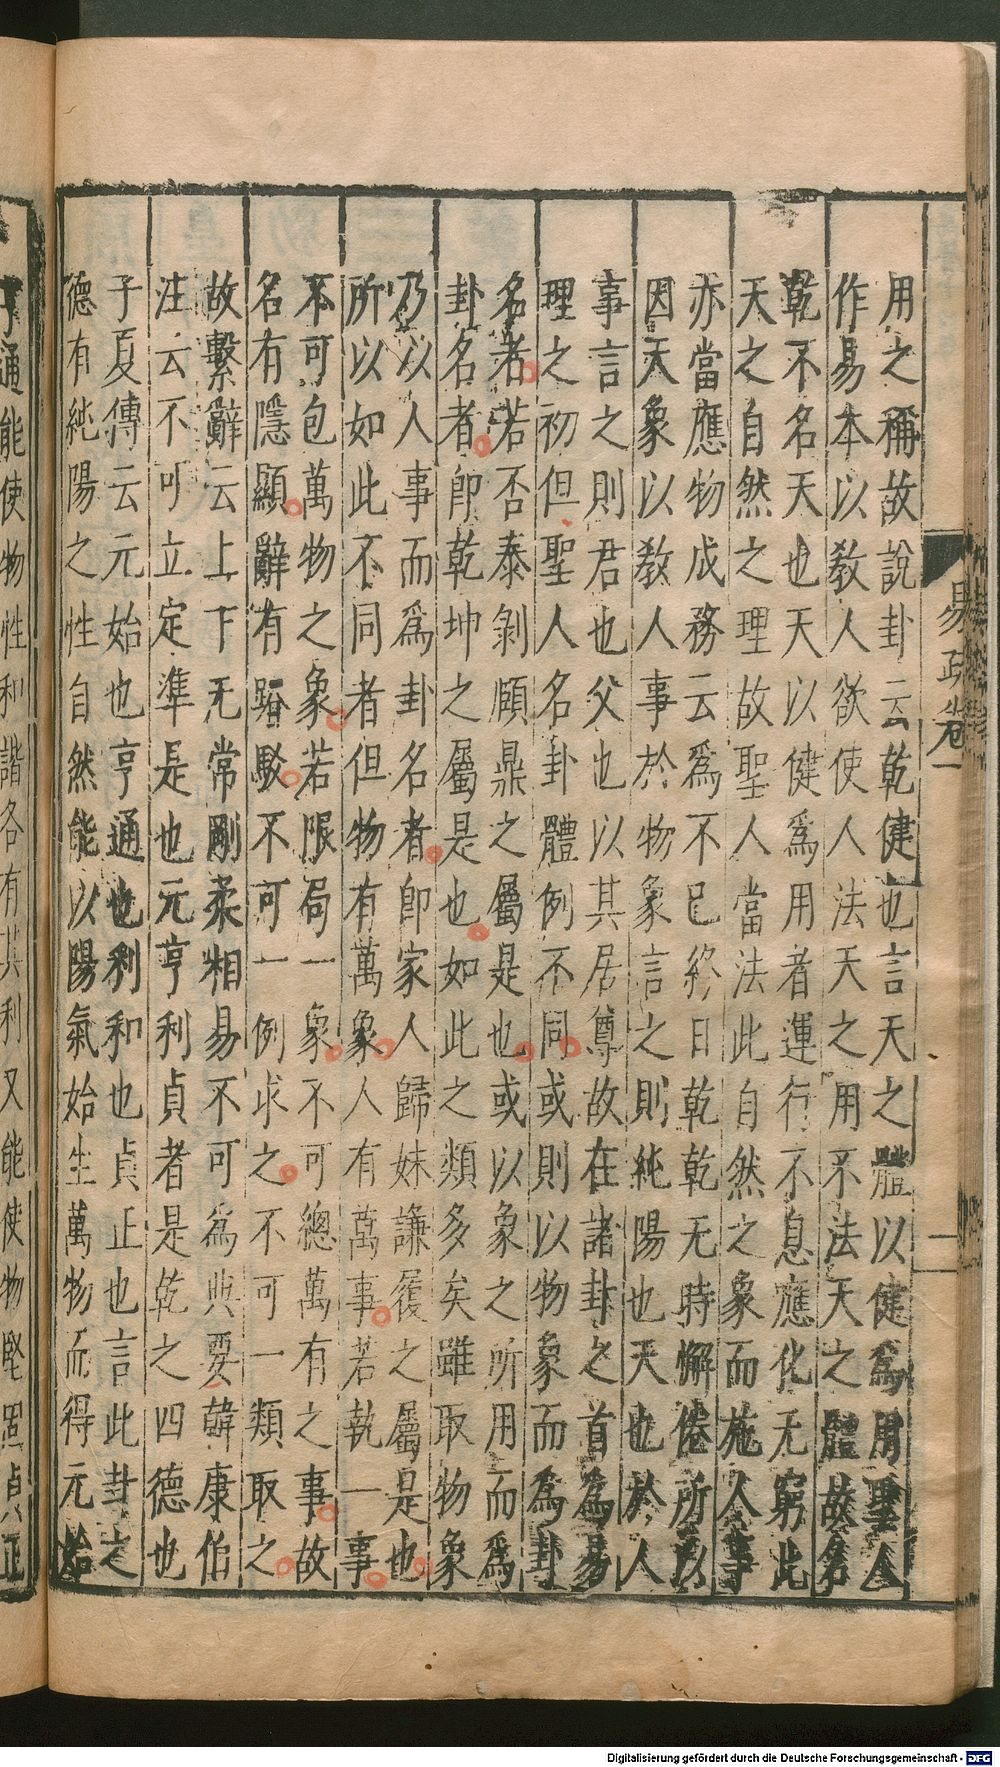 易疏卷一
一
用之稱故說卦云乾健也言天之體以健爲用聖人
作易本以教人欲使人法天之用不法天之體故名
乾不名天也天以健爲用者運行不息應化无窮此
天之自然之理故聖人當法此自然之象而施人事
亦當應物成務云爲不已終日乾乾无時懈倦所以
因天象以教人事於物象言之則純陽也天也於人
事言之則君也父也以其居尊故在諸卦之首爲易
理之初但聖人名卦體例不同或則以物象而爲卦
名者若否泰剝頤鼎之屬是也或以象之所用而爲
卦名者即乾坤之屬是也如此之類多矣雖取物象
乃以人事而爲卦名者即家人歸妹謙履之屬是也
所以如此不同者但物有萬象人有萬事若執一事
不可包萬物之象若限局一象不可總萬有之事故
名有隱顯辭有踳駁不可一例求之不可一類取之
故繫辭云上下无常剛柔相易不可爲典要韓康伯
注云不可立定準是也元亨利貞者是乾之四德也
子夏傳云元始也亨通也利和也貞正也言此卦之
德有純陽之性自然能以陽氣始生萬物而得元始
亨通能使物性和諧各有其利又能使物堅固貞正
Digitalisierung gefördert durch die Deutsche Forschungsgemeinschaft - DFG